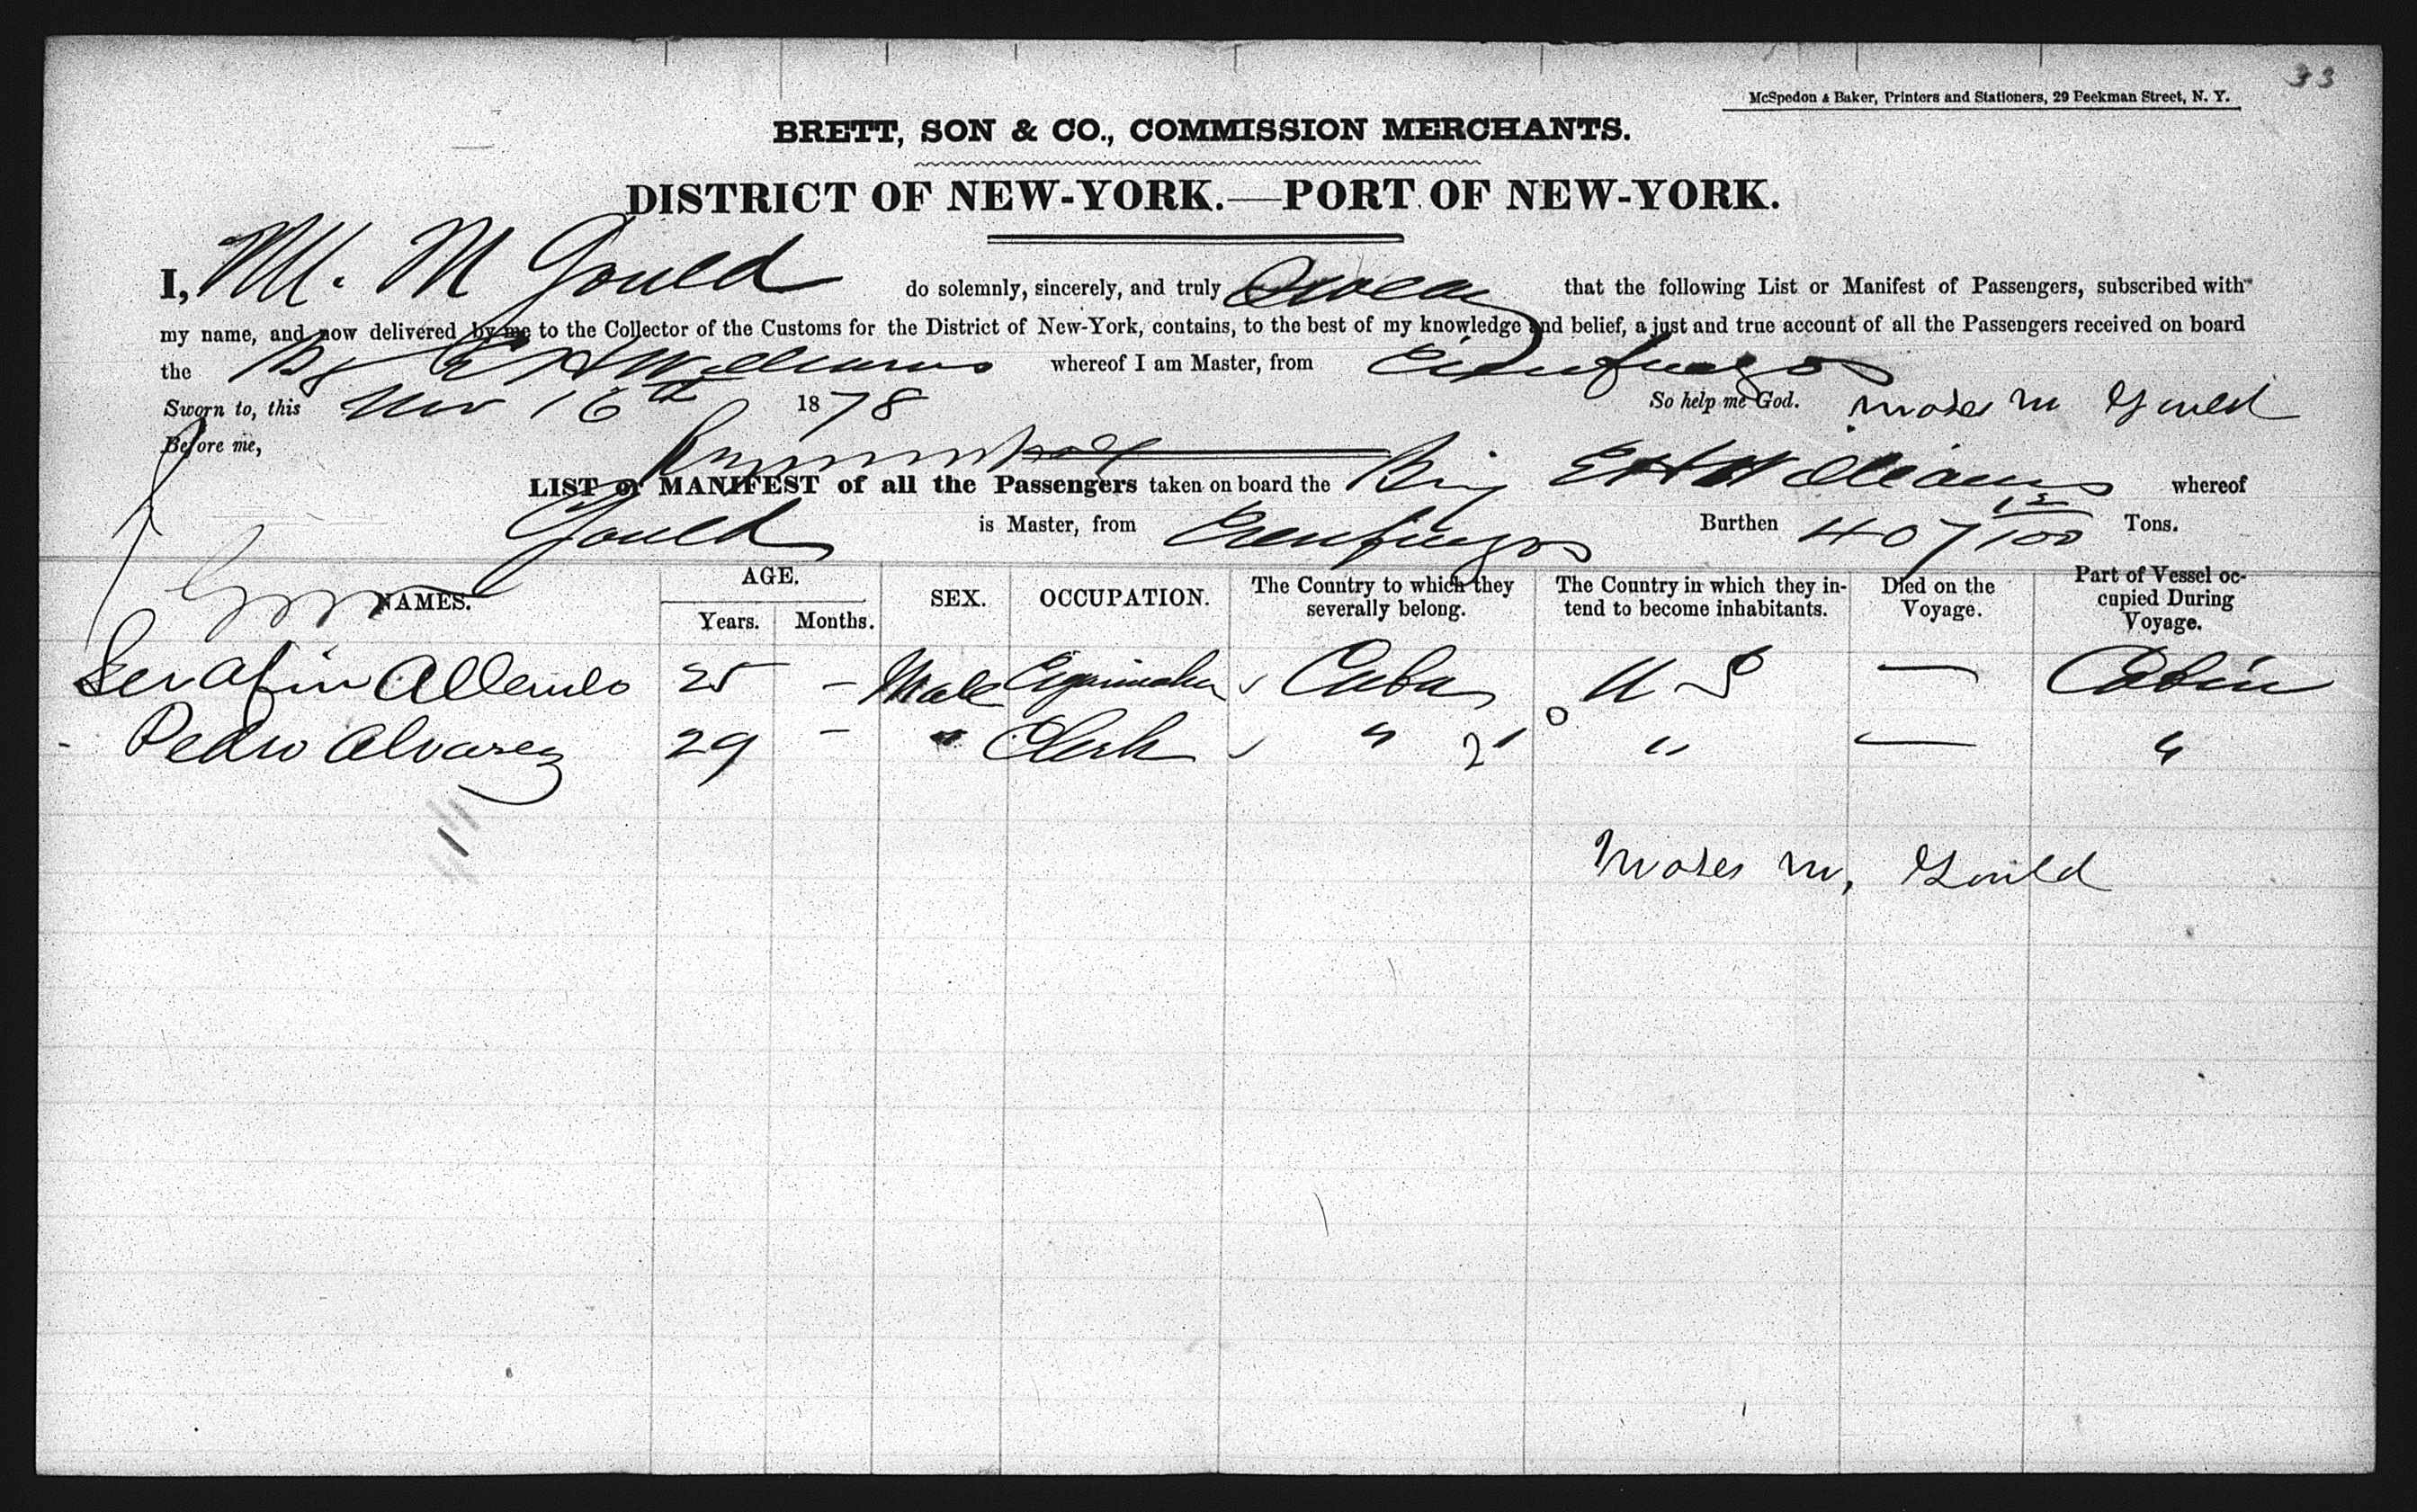 33
McSpedon & Baker, Printers and Stationers, 29 Beekman Street, N. Y.
BRETT, SON & CO., COMMISSION MERCHANTS.
DISTRICT OF NEW-YORK.—PORT OF NEW-YORK.
I, M. M Gould do solemnly, sincerely, and truly Swear that the following List or Manifest of Passengers, subscribed with
my name, and now delivered by me to the Collector of the Customs for the District of New-York, contains, to the best of my knowledge and belief, a just and true account of all the Passengers received on board
the Bg E H Williams whereof I am Master, from Cienfuegos
Sworn to, this Nov 16th 1878 So help me God. Moses M Gould
Before me,
LIST or MANIFEST of all the Passengers taken on board the Brig E H Williams whereof
Gould is Master, from Cienfuegos Burthen 407 12/100 Tons.
NAMES. AGE. Years. Months. SEX. OCCUPATION. The Country to which they severally belong. The Country in which they intend to become inhabitants. Died on the Voyage. Part of Vessel occupied During Voyage.
Serafin Allendo 25 – Male Cigarmaker Cuba U S — Cabin
Pedro Alvarez 29 – " Clerk " " — "
Moses M, Gould